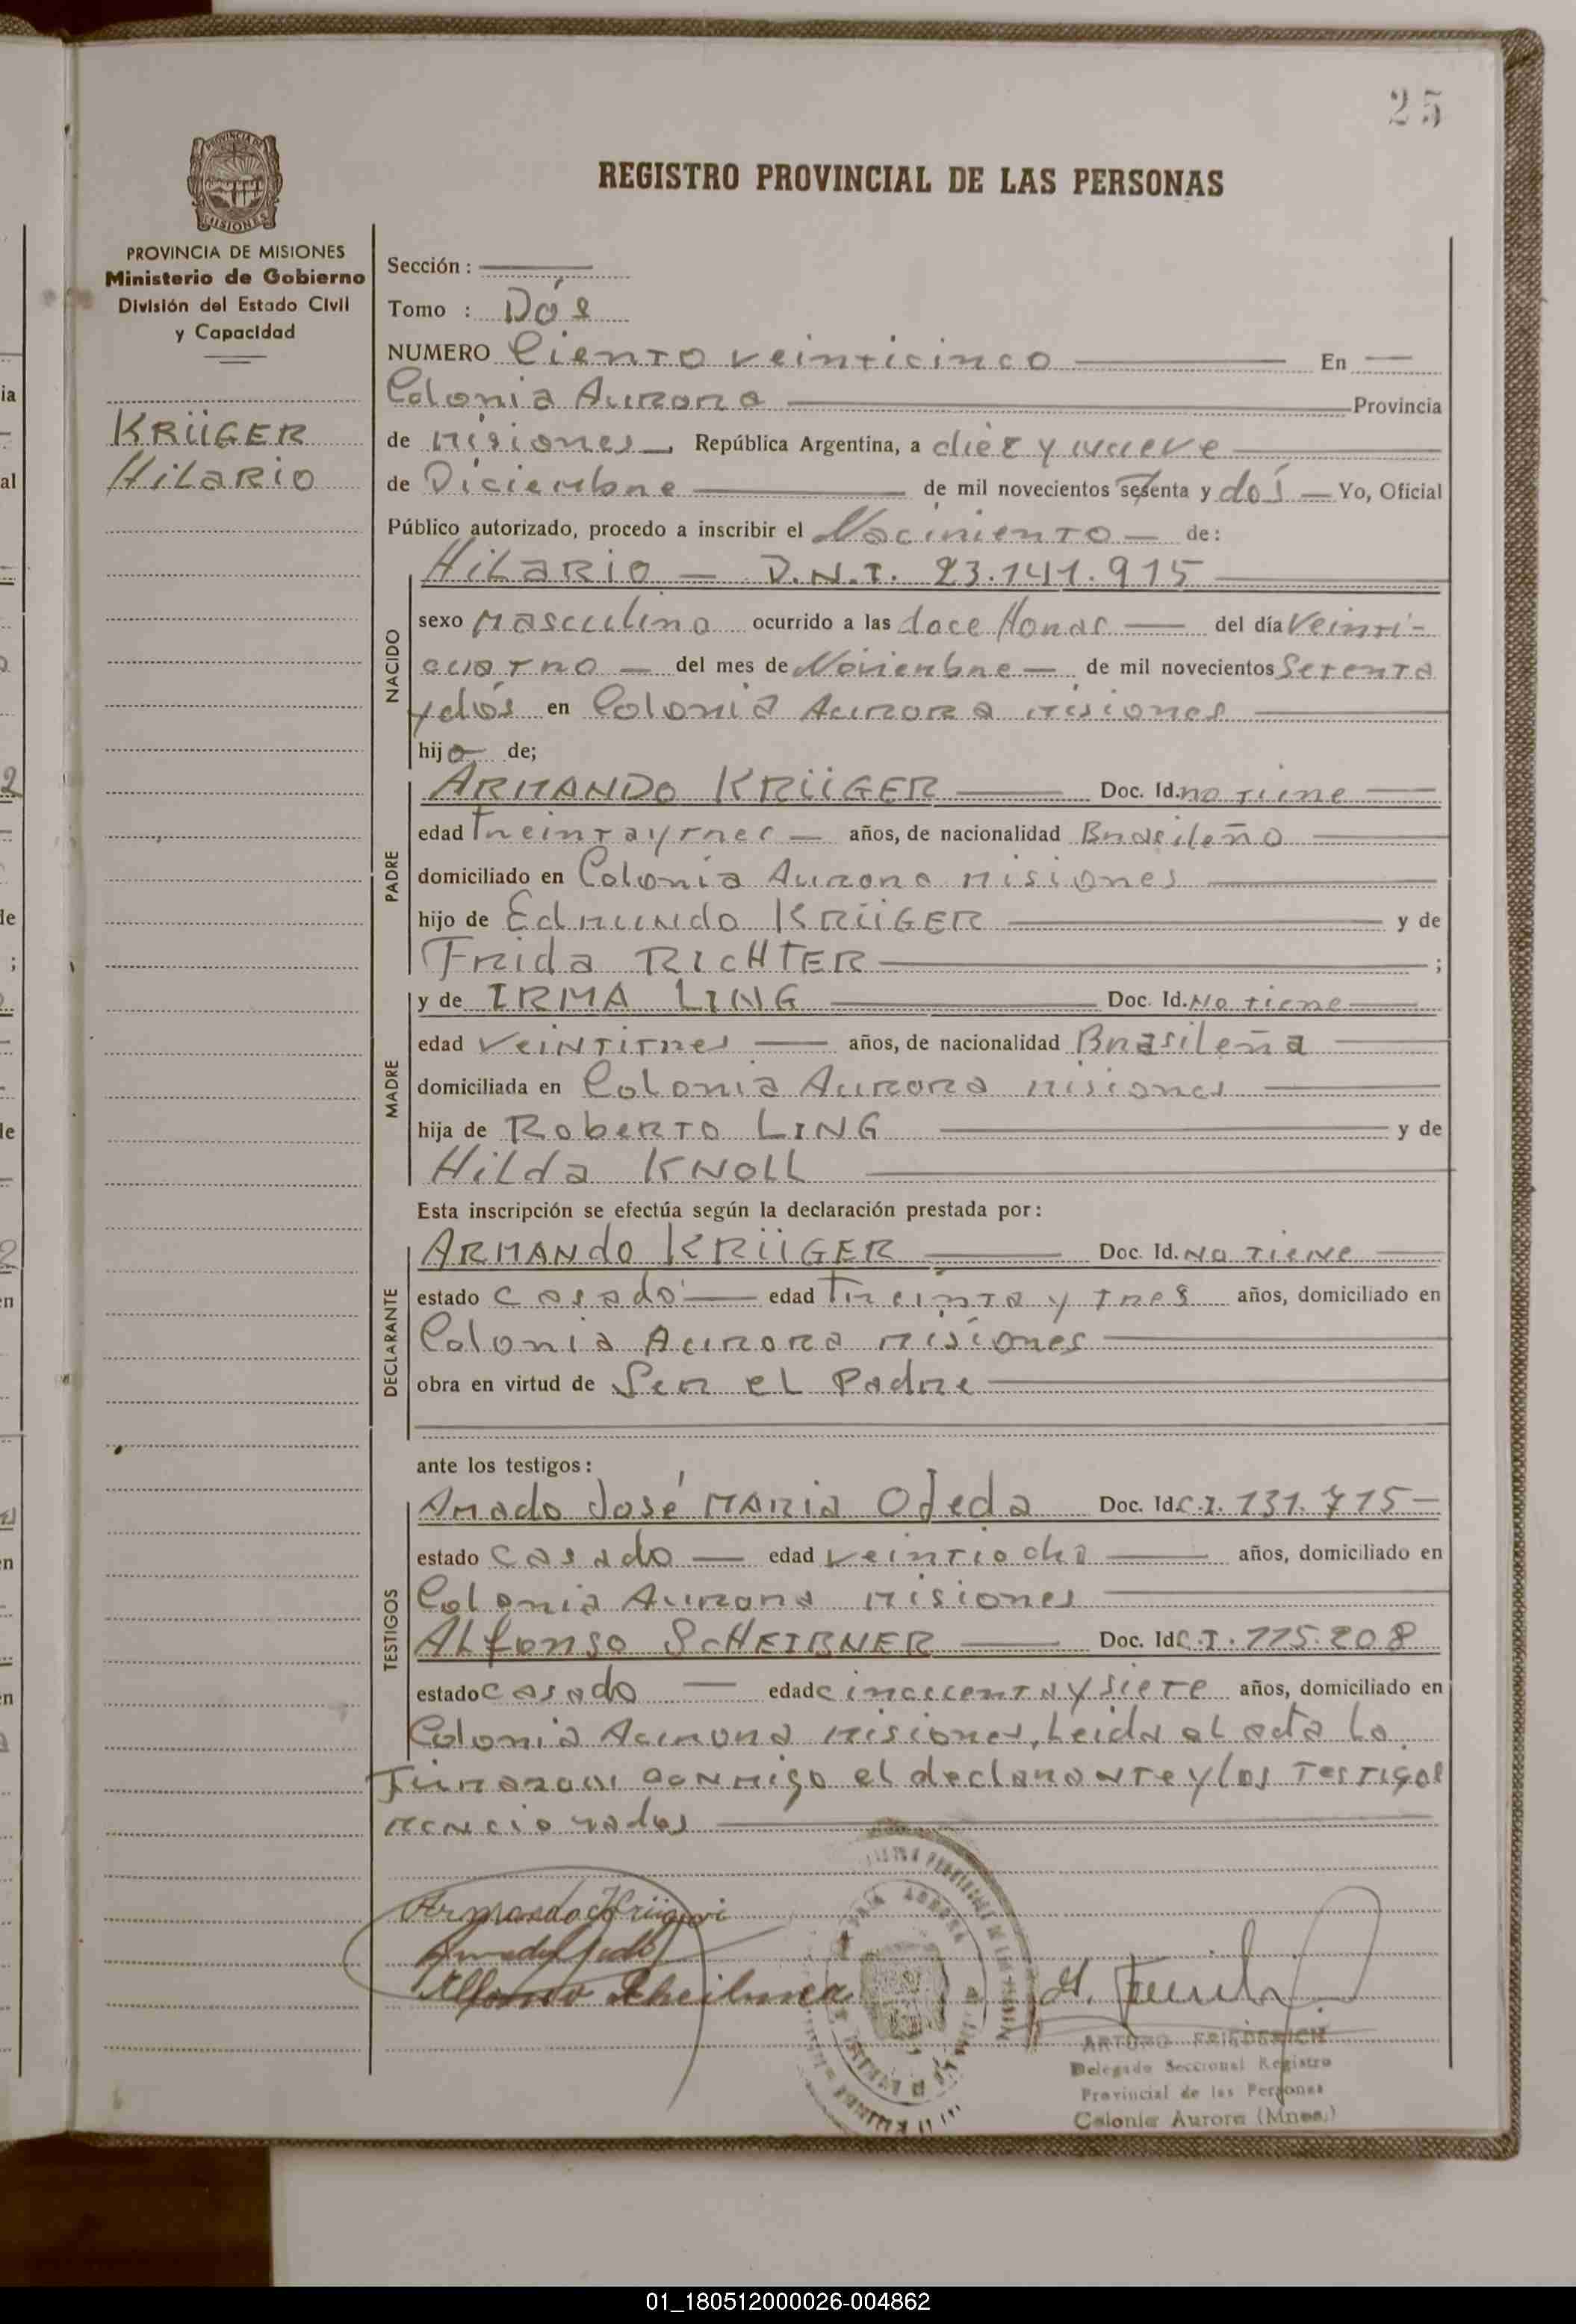 25
REGISTRO PROVINCIAL DE LAS PERSONAS
PROVINCIA DE MISIONES
Ministerio de Gobierno
División del Estado Civil
y Capacidad
KRÜGER
HiLARIO
Sección :
Tomo : Dós
NUMERO Ciento veinticinco En
Colonia Aurora Provincia
de Misiones República Argentina, a diéz y nueve
de Diciembre de mil novecientos setenta y dós Yo, Oficial
Público autorizado, procedo a inscribir el Naciniento de:
HiLARIO D.N.I. 23.141.915
NACIDO
sexo Masculino ocurrido a las doce Horas del día Veinti-
cuatro del mes de Noviembre de mil novecientos Setenta
y dós en Colonia Aurora Misiones
hijo de;
PADRE
ARMANDO KRÜGER Doc. Id. no tiene
edad Treinta y tres años, de nacionalidad Brasileño
domiciliado en Colonia Aurora Misiones
hijo de Edmundo KRÜGER y de
Frida RICHTER ;
MADRE
y de IRMA LING Doc. Id. No tiene
edad Veintitres años, de nacionalidad Brasileña
domiciliada en Colonia Aurora Misiones
hija de Roberto LING y de
Hilda KNOLL
Esta inscripción se efectúa según la declaración prestada por :
DECLARANTE
ARMANDO KRÜGER Doc. Id. No Tiene
estado Casado edad Treinta y tres años, domiciliado en
Colonia Aurora Misiones
obra en virtud de Ser el Padre
ante los testigos :
TESTIGOS
Amado José MARIA Ojeda Doc. Id. C.I. 131.715
estado Casado edad veintiocho años, domiciliado en
Colonia Aurora Misiones
ALfonso SCHEIBNER Doc. Id C.I. 115.208
estado Casado edad cincuenta y siete años, domiciliado en
Colonia Aurora Misiones, Leida el acta la
firmaron conmigo el declarante y los testigos
mencionados
Armando Krüger
Alfonso Scheibner
ARTURO FRIEDERICH
Delegado Seccional Registro
Provincial de las Personas
Colonia Aurora (Mnes.)
01_180512000026-004862